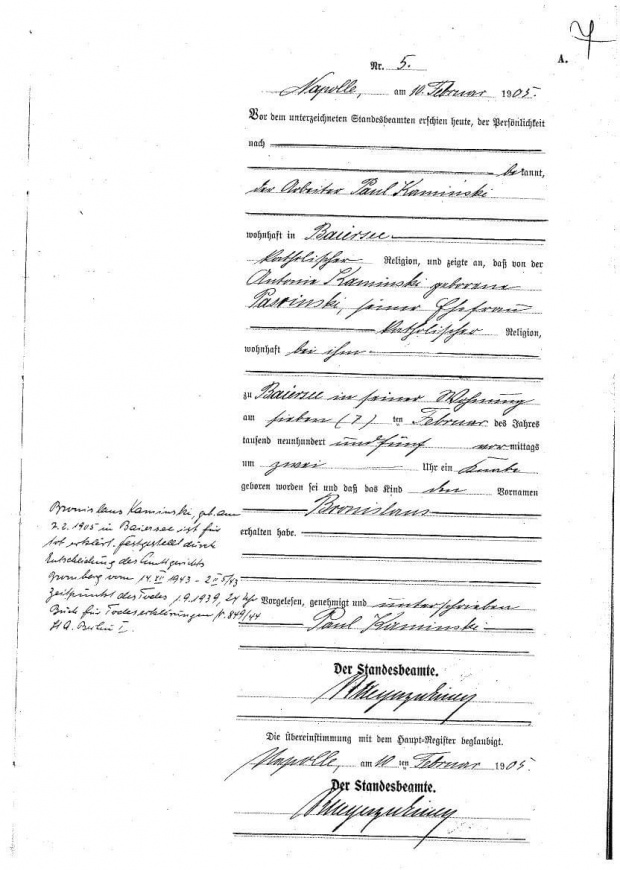 A.
Nr. 5.
Napolle, am 10. Februar 1905.
Vor dem unterzeichneten Standesbeamten erschien heute, der Persönlichkeit
nach
bekannt,
der Arbeiter Paul Kaminski
wohnhaft in Baiersee
katholischer Religion, und zeigte an, daß von der
Antonie Kaminski geborene
seiner Ehefrau
katholischer Religion,
wohnhaft bei ihm
zu Baiersee in seiner Wohnung
am sieben (7) ten Februar des Jahres
tausend neunhundert undfünf vormittags
um zwei Uhr ein Knabe
geboren worden sei und daß das Kind den Vornamen
Bronislaus
erhalten habe.
Bronislaus Kaminski, geb. am
7.2.1905 in Baiersee ist für
tot erklärt. Festgestellt durch
Entscheidung des Amtsgerichts
Bromberg vom 14. 1943 - 2 II 5/43
Zeitpunkt des Todes 1.9.1939, 24 Uhr
Buch für Todeserklärungen Nr. 849/44
Berlin I.
Vorgelesen, genehmigt und unterschrieben
Paul Kaminski
Der Standesbeamte.
Die Übereinstimmung mit dem Haupt-Register beglaubigt.
Napolle, am 10 ten Februar 1905.
Der Standesbeamte.